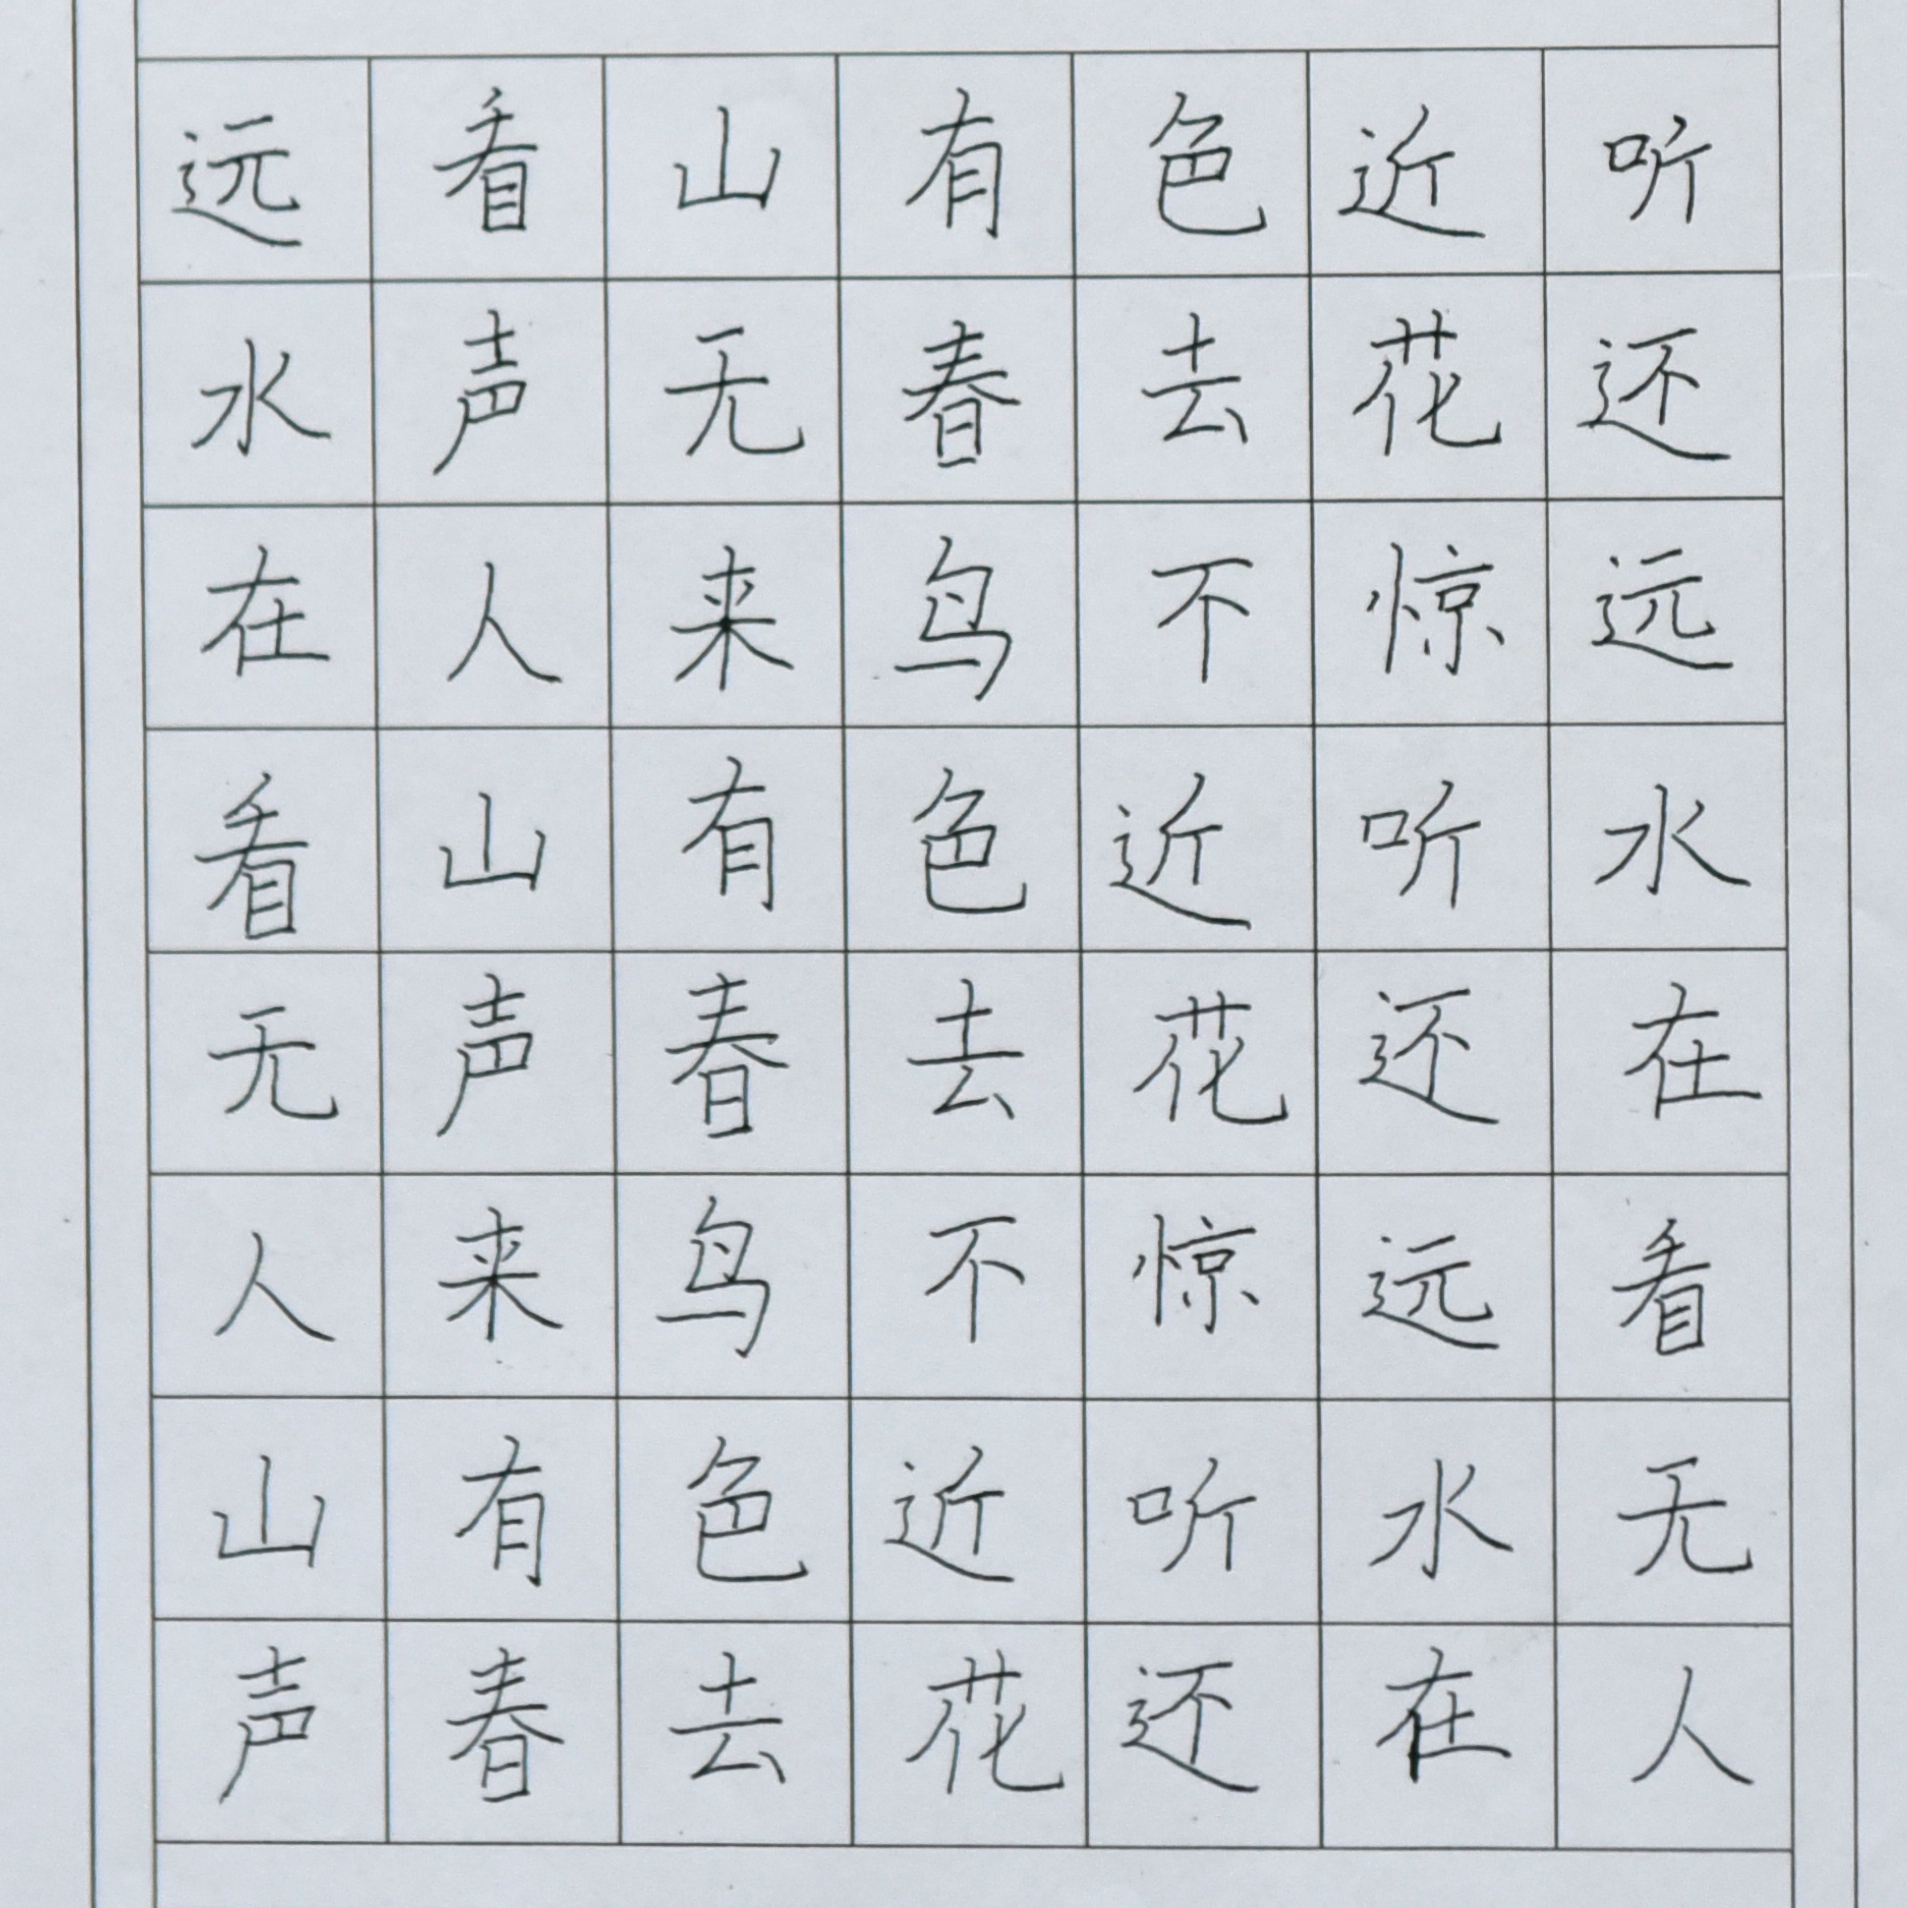 远看山有色近听
水声无春去花还
在人来鸟不惊远
看山有色近听水
无声春去花还在
人来鸟不惊远看
山有色近听水无
声春去花还在人